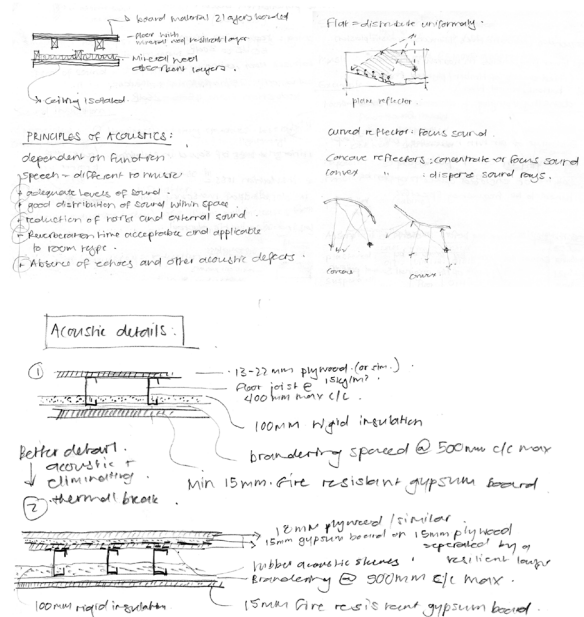 board material 2 layers bonded
floor with
mineral wool resilient layer
Mineral wool
absorbent layers.
Ceiling isolated
PRINCIPLES OF ACOUSTICS:
dependent on function
speech - different to music
+ adequate levels of sound.
+ good distribution of sound within space.
+ reduction of noise and external sound.
+ Reverberation time acceptable and applicable
to room type.
+ Absence of echoes and other acoustic defects.
Flat = distribute uniformly.
plane reflector.
curved reflector: focus sound.
Concave reflectors: concentrate or focus sound
convex " : disperse sound rays.
concave
convex
Acoustic details:
1
12-22 mm plywood. (or sim.)
floor joist @ 15kg/m²
400mm max c/c
100mm rigid insulation
brandering spaced @ 500mm c/c max
Min 15mm fire resistant gypsum board
Better detail.
acoustic +
eliminating
thermal break.
2
12mm plywood/similar
15mm gypsum board on 15mm plywood
seperated by a
resilient layer
rubber acoustic
Brandering @ 500mm c/c max.
100mm rigid insulation
15mm fire resistant gypsum board.